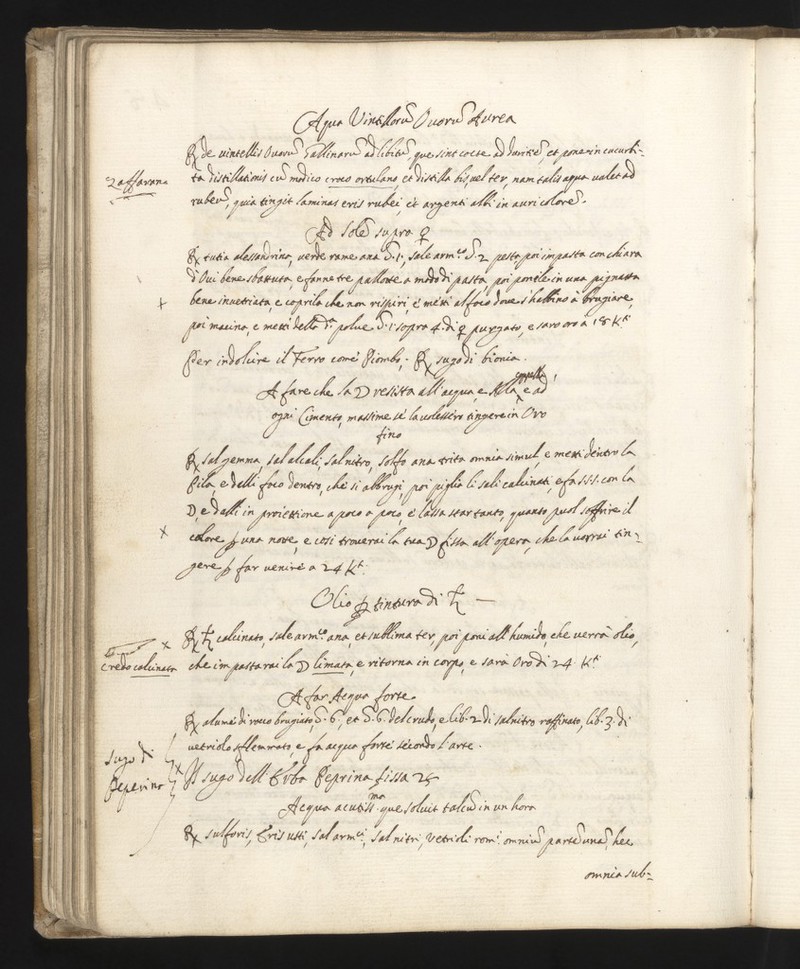 Aqua Vintellorũ Ovorũ Aurea
℞ de vintellis Ovorũ Gallinarũ ad libitũ, que sint cocte ad duritiẽ, et pone in cucurbi-
Zaffarana
ta distillationis cũ modico croco ortulano, et distilla bis, vel ter, nam talis aqua valet ad
rubeũ, quia tingit laminas eris rubei, et argenti albi in auri colorẽ.
Ad Solẽ supra ☿
℞ tutia alessandrina, verde rame ana ℥.1. sale arm.co ℥.2 pesta, poi impasta con chiara
d'Ovi bene sbattuta, e fanne tre pallotte a modo di pasta, poi ponile in una pignatta
+ bene invetriata, e coprila che non rispiri, e metti al foco dove s'habbino à brugiare,
poi macina, e metti della d.ª polve ℥.1 sopra 4. di ☿ purgato, e sarà oro à 18 K.ti
Per indolcire il Ferro come Piombo. ℞ sugo di bionia.
A fare che la ☽ resista all'acqua, e alla coppella, e ad
ogni Cimento, massime se la volessero tingere in Oro
fino
℞ sal gemma, sal alcali, sal nitro, solfo ana trita omnia simul, e metti dentro la
Pila, e dalli foco dentro, che si abbrugi, poi piglia li sali calcinati, e fa s.s.s. con la
☽, e dalli in proiettione a poco a poco, e lassa star tanto, quanto puol soffrire il
× calore ꝑ una notte, e così troverai la tua ☽ fissa all'opera, che la vorrai tin=
gere ꝑ far venire a 24 K.ti
Olio ꝑ tintura di ♄ —
× ℞ ♄ calcinato, sale arm.co ana, et sublima ter, poi poni all'humido, che verrà olio,
Credo calcinata
che impastarai la ☽ limata, e ritorna in corpo, e sarà Oro di 24. K.ti
A far Acqua forte
℞ alume di rocco brugiato, ℥.6., et ℥.6. del crudo, e lib. 2 di salnitro raffinato, lib. 3. di
vetriolo sflemmato, e fa acqua forte secondo l'arte.
Sugo di
Peperina
× Il sugo dell'Erba Peprina fissa
Acqua acutiss.ma que solvit talcũ in un hora
℞ sulforis, Eris usti, sal arm.ci, sal nitri, vetrioli rom. omniũ partẽ unã, hec
omnia sub=